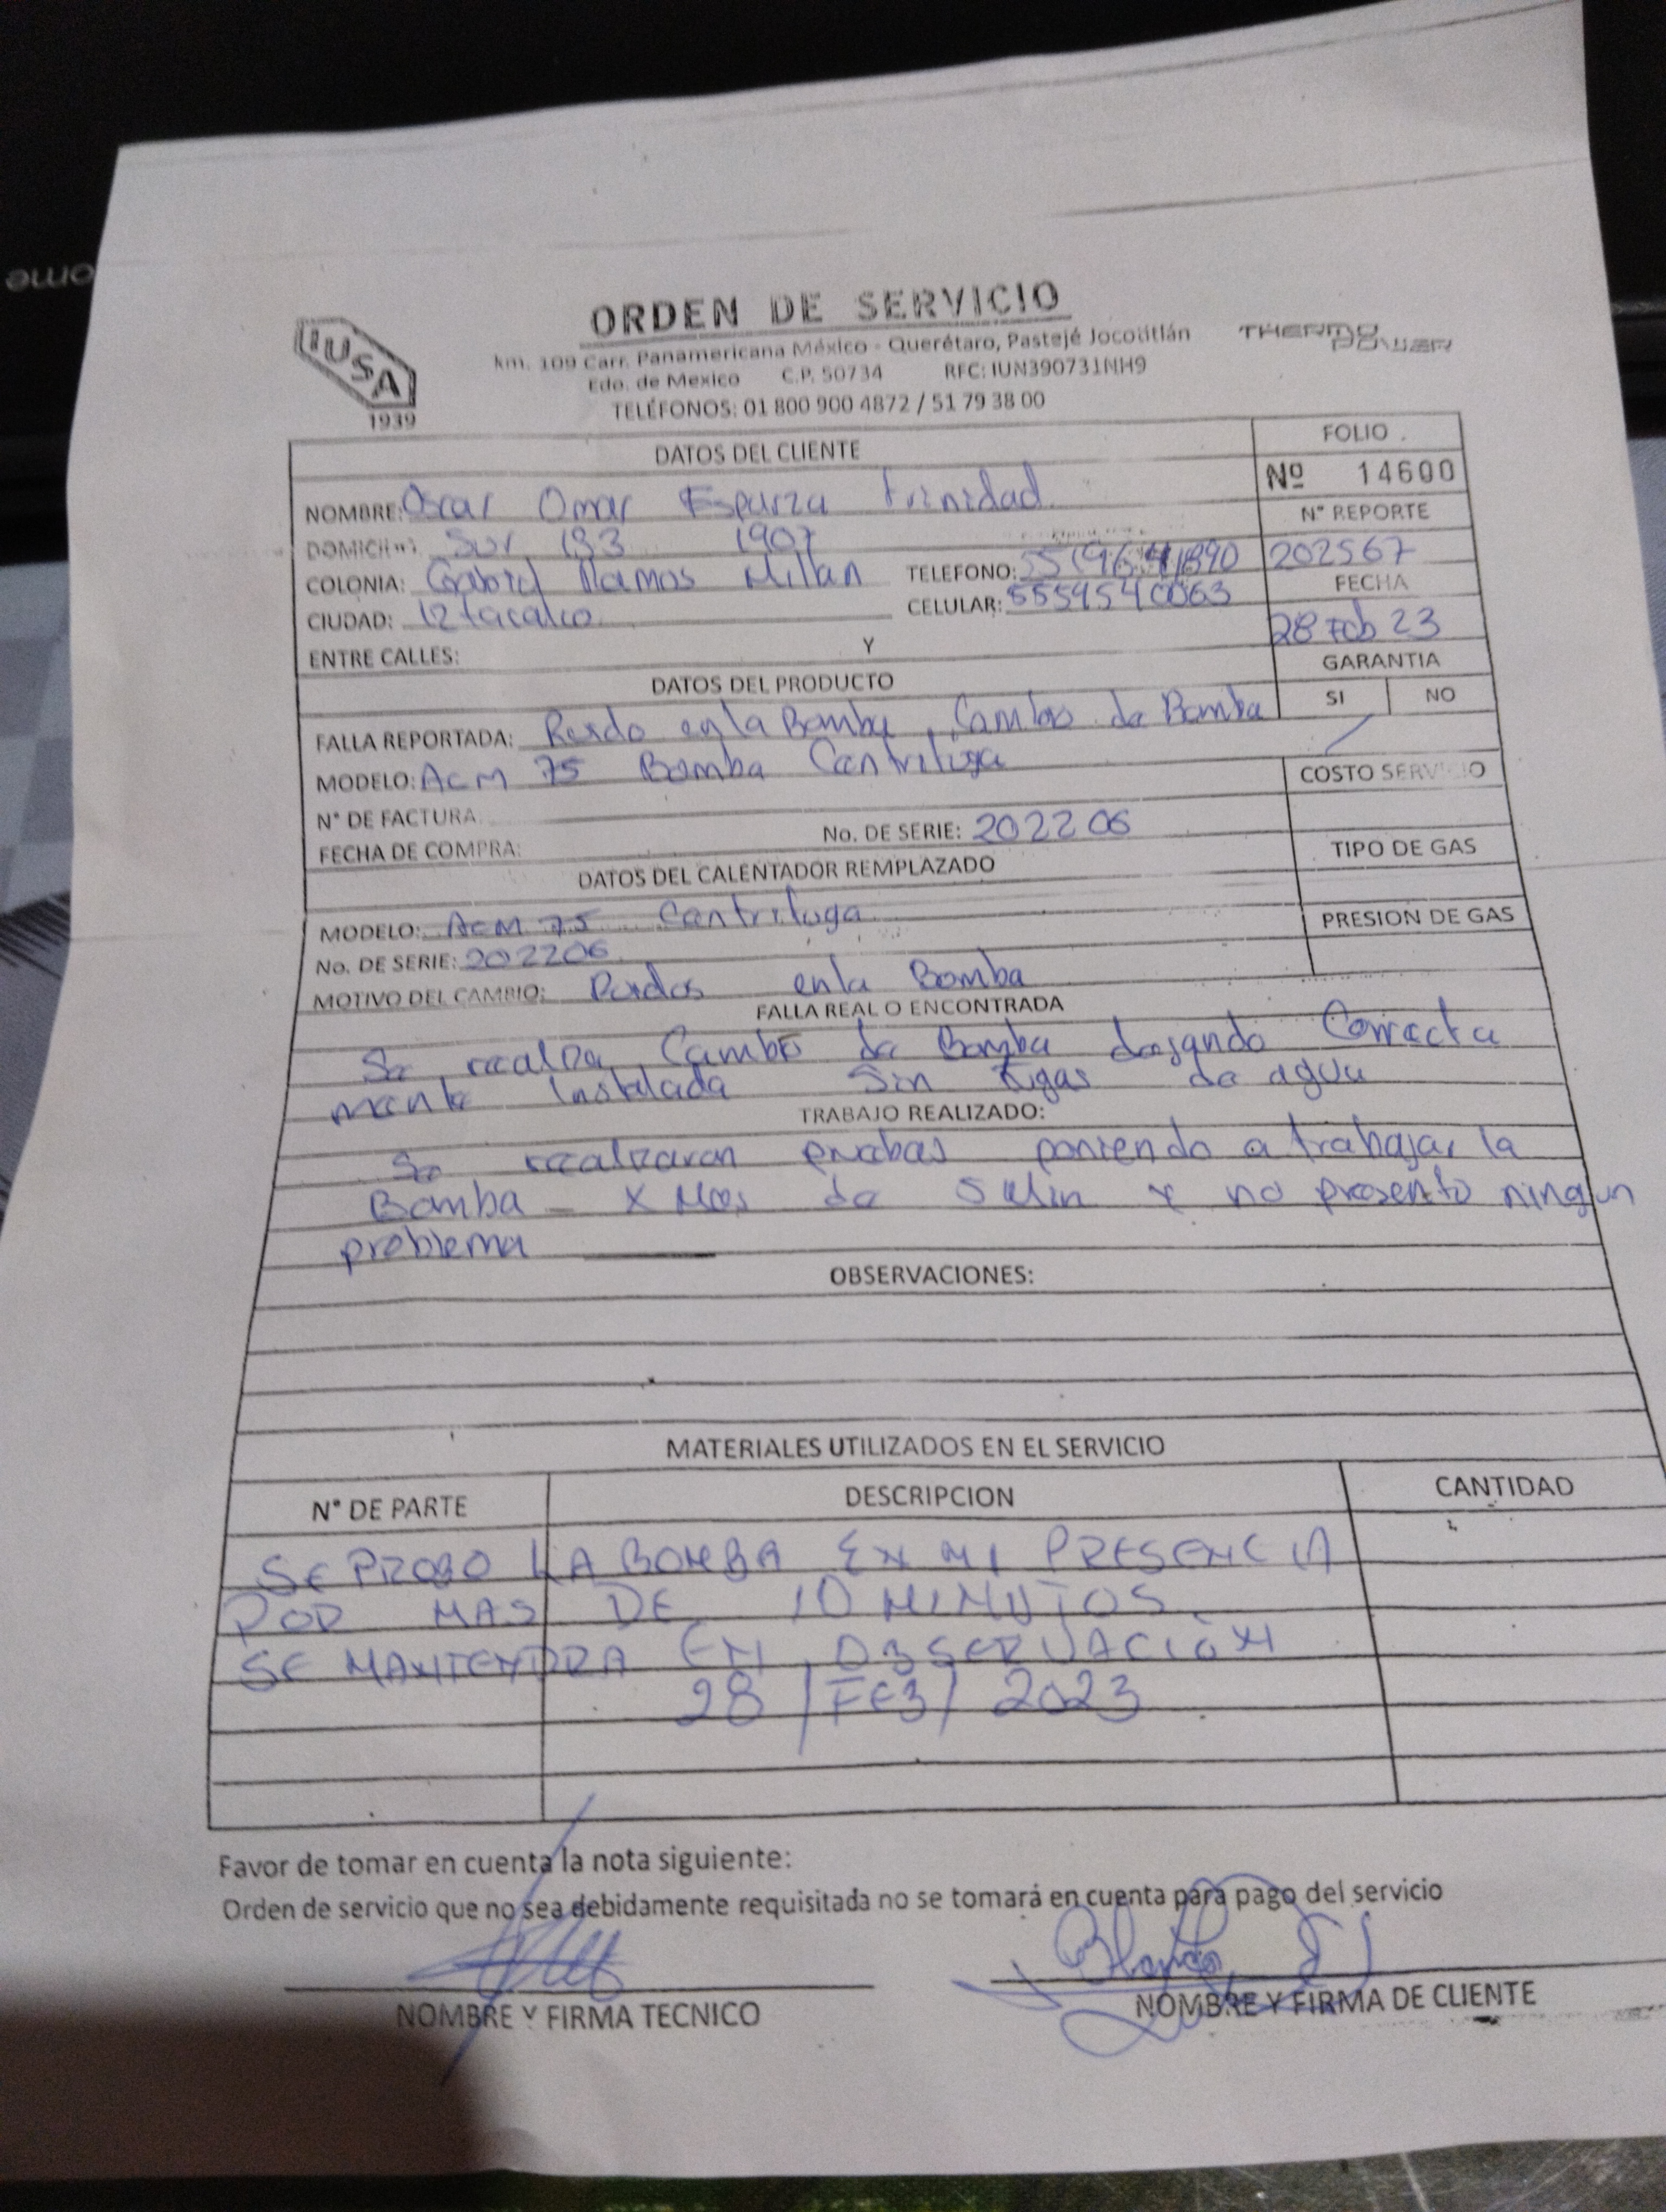 ome
ORDEN DE SERVICIO
IUSA
1939
km. 109 Carr. Panamericana México - Querétaro, Pastejé Jocotitlán
Edo. de Mexico C.P. 50734 RFC: IUN390731NH9
TELÉFONOS: 01 800 900 4872 / 51 79 38 00
THERMO POWER
DATOS DEL CLIENTE
FOLIO
Nº 14600
NOMBRE: Oscar Omar Esparza trinidad
Nº REPORTE
202567
DOMICILIO Sur 133 1907
COLONIA: Gabriel Ramos Millan TELEFONO:
CIUDAD: Iztacalco CELULAR: 5559540063
FECHA
28 Feb 23
ENTRE CALLES: Y
GARANTIA
SI NO
DATOS DEL PRODUCTO
FALLA REPORTADA: Ruido en la Bomba, Cambio de Bomba
MODELO: ACM 75 Bomba Centrifuga
COSTO SERVICIO
N° DE FACTURA
No. DE SERIE: 202206
FECHA DE COMPRA:
TIPO DE GAS
DATOS DEL CALENTADOR REMPLAZADO
MODELO: ACM 75 Centrifuga
PRESION DE GAS
No. DE SERIE: 202206
MOTIVO DEL CAMBIO: Ruidos en la Bomba
FALLA REAL O ENCONTRADA
Se realiza Cambio de Bomba dejando Correcta
mente Instalada Sin fugas de agua
TRABAJO REALIZADO:
Se realizaron pruebas poniendo a trabajar la
Bomba X Mas de 5 Min y no presento ningun
problema
OBSERVACIONES:
MATERIALES UTILIZADOS EN EL SERVICIO
N° DE PARTE DESCRIPCION CANTIDAD
SE PROBO LA BOMBA EN MI PRESENCIA
POR MAS DE 10 MINUTOS.
SE MANTENDRA EN OBSERVACIÓN
28/FEB/2023
Favor de tomar en cuenta la nota siguiente:
Orden de servicio que no sea debidamente requisitada no se tomará en cuenta para pago del servicio
NOMBRE Y FIRMA TECNICO
NOMBRE Y FIRMA DE CLIENTE